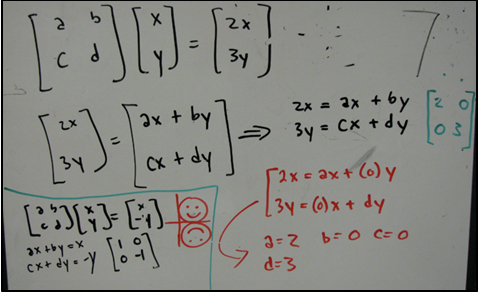 [a b; c d] [x; y] = [2x; 3y]
[2x; 3y] = [ax + by; cx + dy] ⇒
2x = ax + by
3y = cx + dy
[2 0; 0 3]
2x = ax + (0)y
3y = (0)x + dy
a=2 b=0 c=0
d=3
[a b; c d] [x; y] = [x; -y]
ax + by = x
cx + dy = -y
[1 0; 0 -1]